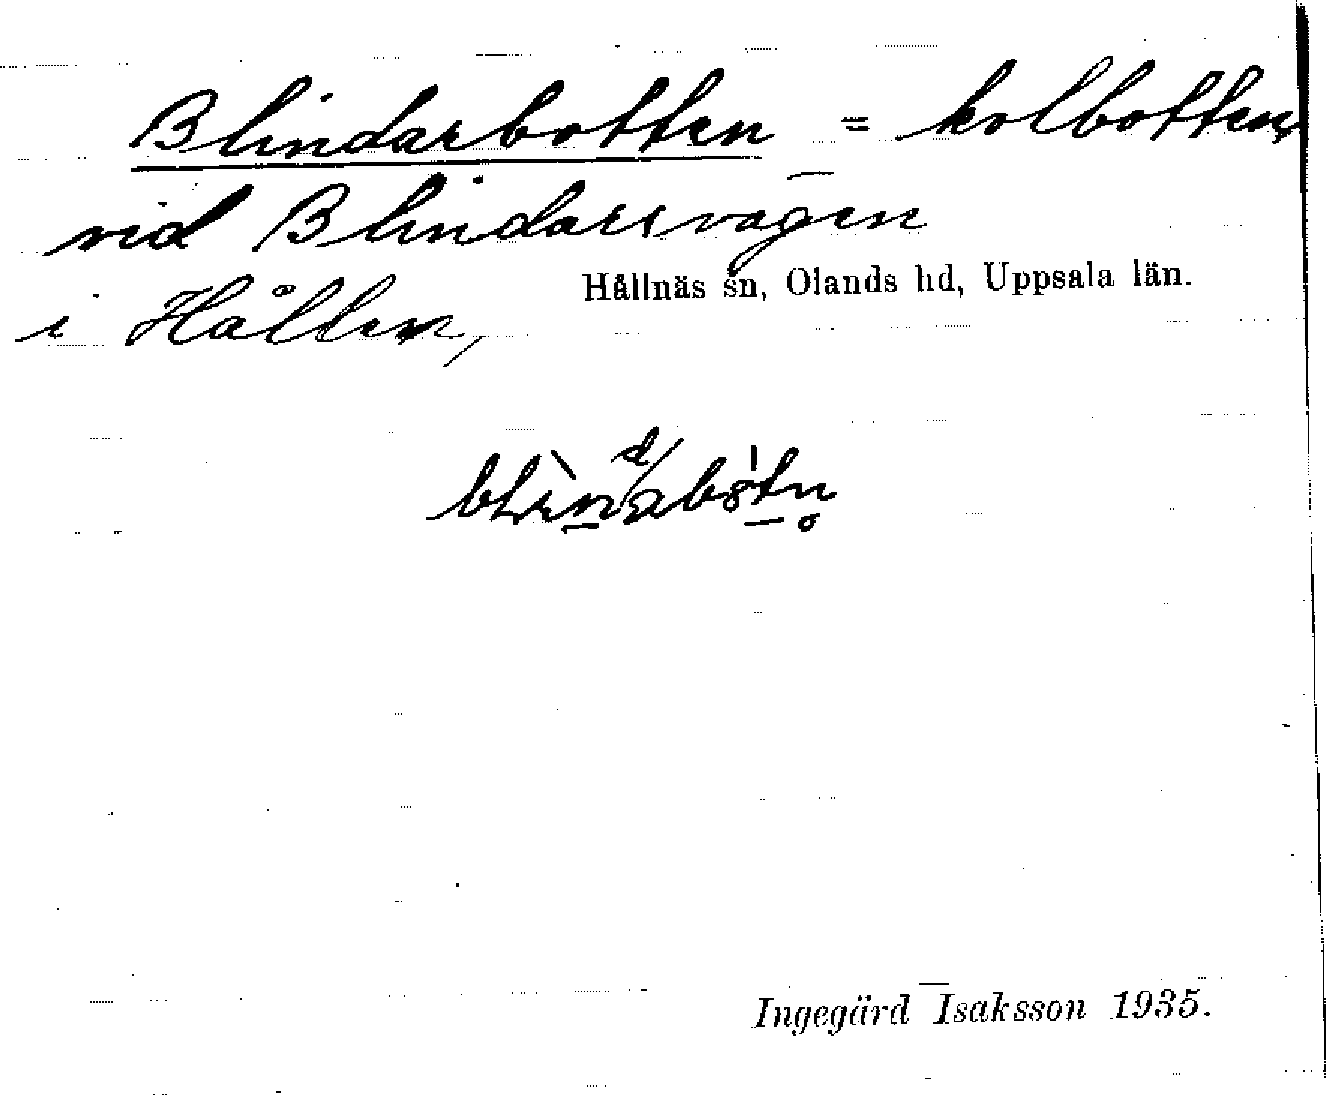 Blindarbotten = kolbotten,
vid Blindarsvägen
i Hållen,
Hållnäs sn, Olands hd, Uppsala län.
Ingegärd Isaksson 1935.